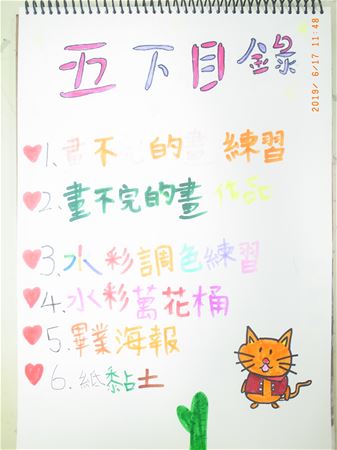 五下目錄
1.畫不完的畫 練習
2.畫不完的畫 作品
3.水彩調色練習
4.水彩萬花桶
5.畢業海報
6.紙黏土
2019/6/17 11:48